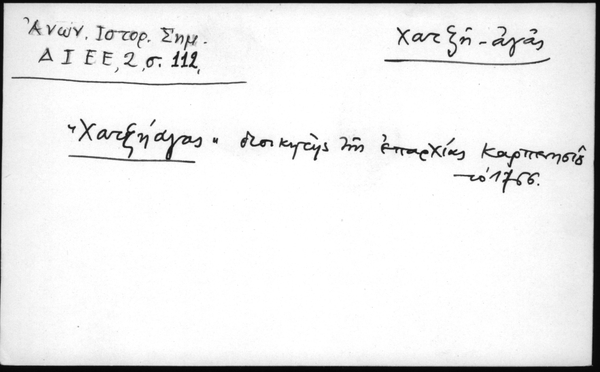 Ἀνων. Ιστορ. Σημ.
Δ Ι Ε Ε, 2, σ. 112,
Χατζῆ - ἀγᾶς
"Χατζήαγας" διοικητὴς τῆς ἐπαρχίας Καρπενησίου
τὸ 1766.